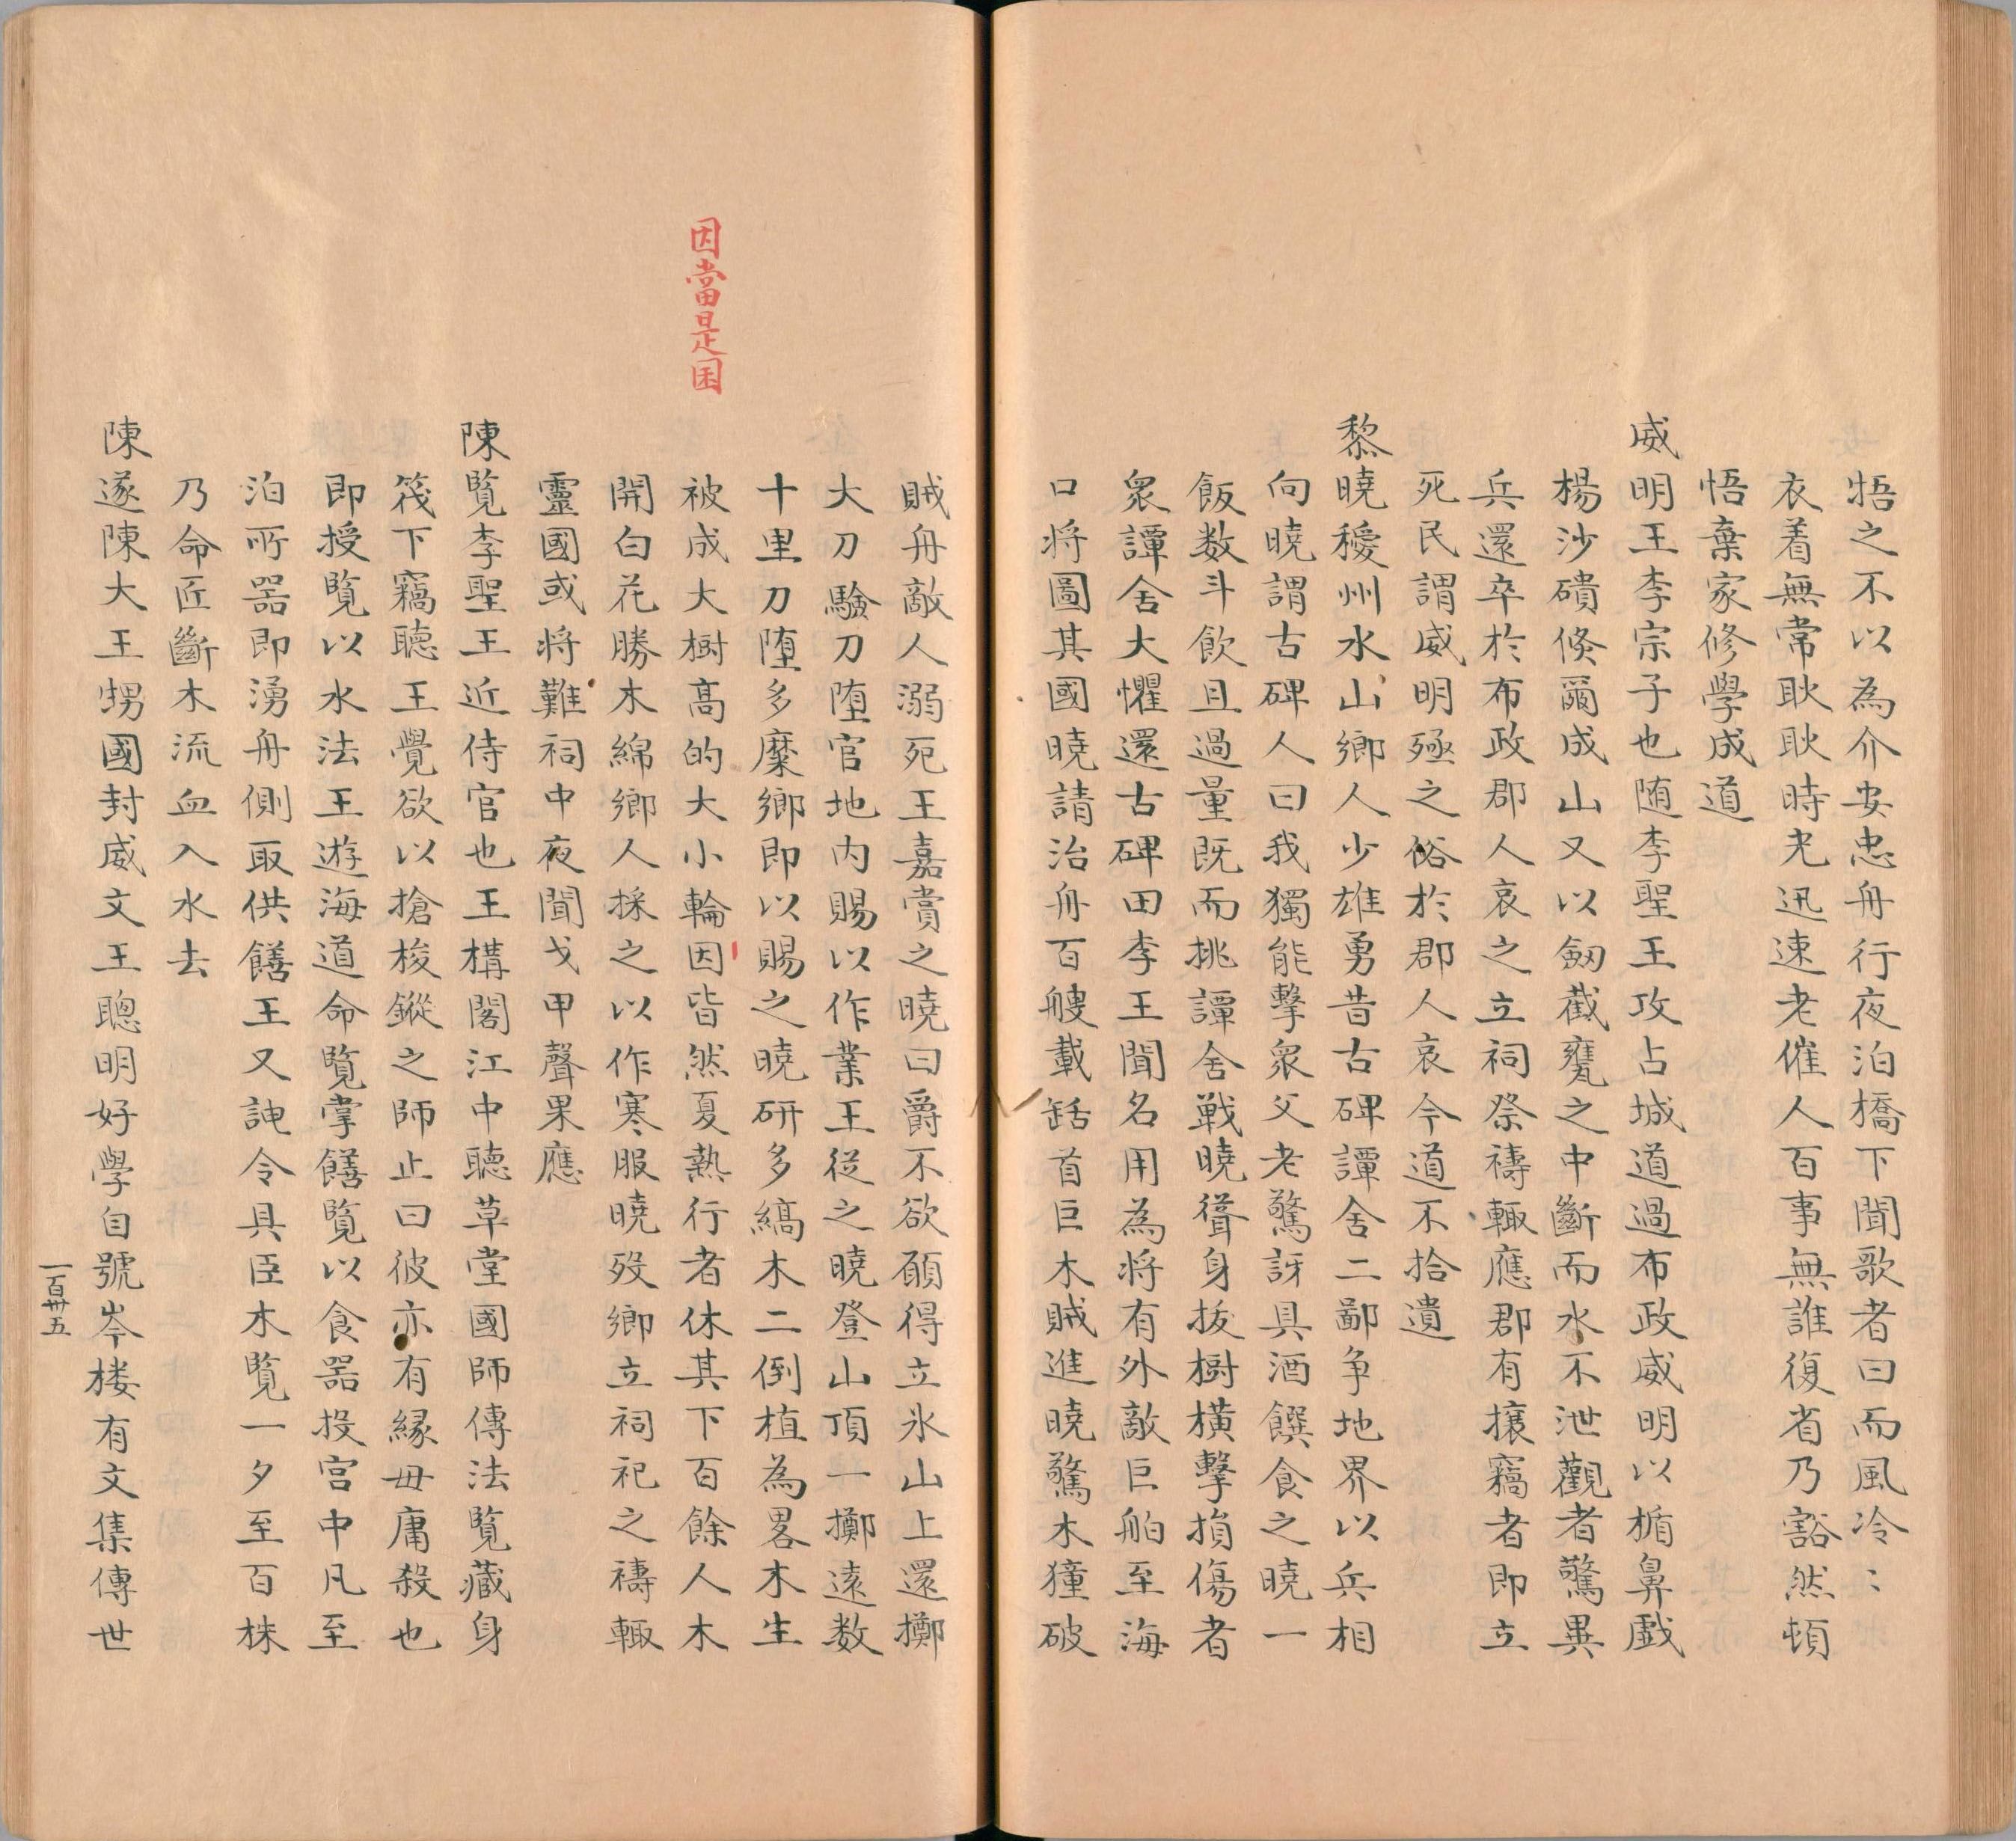 悟之不以為介安忠舟行夜泊橋下聞歌者曰而風冷〻
衣着無常耿耿時光迅速老催人百事無誰復省乃豁然頓
悟棄家修學成道
威明王李宗子也随李聖王攻占城道過布政威明以楯鼻戲
楊沙磧倐爾成山又以劒截甕之中斷而水不泄觀者驚異
兵還卒於布政郡人哀之立祠祭禱輙應郡有攘竊者即立
死民謂威明殛之俗於郡人哀今道不拾遺
黎曉穫州水山鄉人少雄勇昔古碑譚舍二鄙争地界以兵相
向曉謂古碑人曰我獨能擊衆父老驚訝具酒饌食之曉一
飯数斗飲且過量既而挑譚舍戦曉聳身拔樹横擊損傷者
衆譚舍大懼還古碑田李王聞名用為将有外敵巨舶至海
口将圖其國曉請治舟百艘載銛首巨木賊進曉驚木撞破
賊舟敵人溺死王嘉賞之曉曰爵不欲願得立氷山上還擲
大刀驗刀堕官地内賜以作業王從之曉登山頂一擲遠数
十里刀堕多縻鄉即以賜之曉研多縞木二倒植為畧木生
被成大樹高的大小輪因皆然夏熱行者休其下百餘人木
開白花勝木綿鄉人採之以作寒服曉歿鄉立祠祀之禱輙
靈國或将難祠中夜聞戈甲聲果應
陳覧李聖王近侍官也王構閣江中聽草堂國師傳法覧藏身
筏下竊聽王覺欲以搶梭鏦之師止曰彼亦有縁毋庸殺也
即授覧以水法王遊海道命覧掌饍覧以食器投宫中凡至
泊所器即湧舟側取供饍王又詗令具臣木覧一夕至百株
乃命匠斷木流血入水去
陳遂陳大王甥國封威文王聰明好學自號岑楼有文集傳世
因當是囷
一百卅五